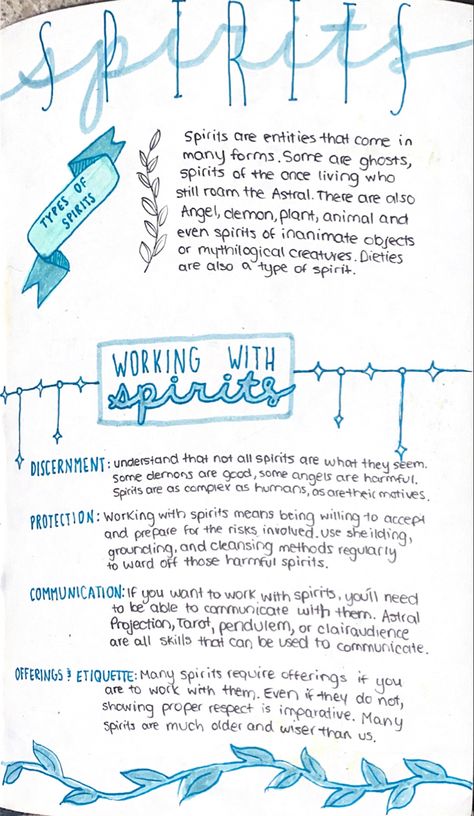 SPIRITS
spirits
TYPES OF
SPIRITS
Spirits are entities that come in
many forms. Some are ghosts,
spirits of the once living who
still roam the Astral. There are also
Angel, demon, plant, animal and
even spirits of inanimate objects
or mythilogical creatures. Dieties
are also a type of spirit.
WORKING WITH
spirits
DISCERNMENT: understand that not all spirits are what they seem.
Some demons are good, some angels are harmful.
Spirits are as complex as humans, as are their motives.
PROTECTION: Working with spirits means being willing to accept
and prepare for the risks involved. Use sheilding,
grounding, and cleansing methods regularly
to ward off those harmful spirits.
COMMUNICATION: If you want to work with spirits, you'll need
to be able to communicate with them. Astral
Projection, Tarot, pendulem, or clairaudience
are all skills that can be used to communicate.
OFFERINGS & ETIQUETTE: Many spirits require offerings if you
are to work with them. Even if they do not,
showing proper respect is imparative. Many
spirits are much older and wiser than us.